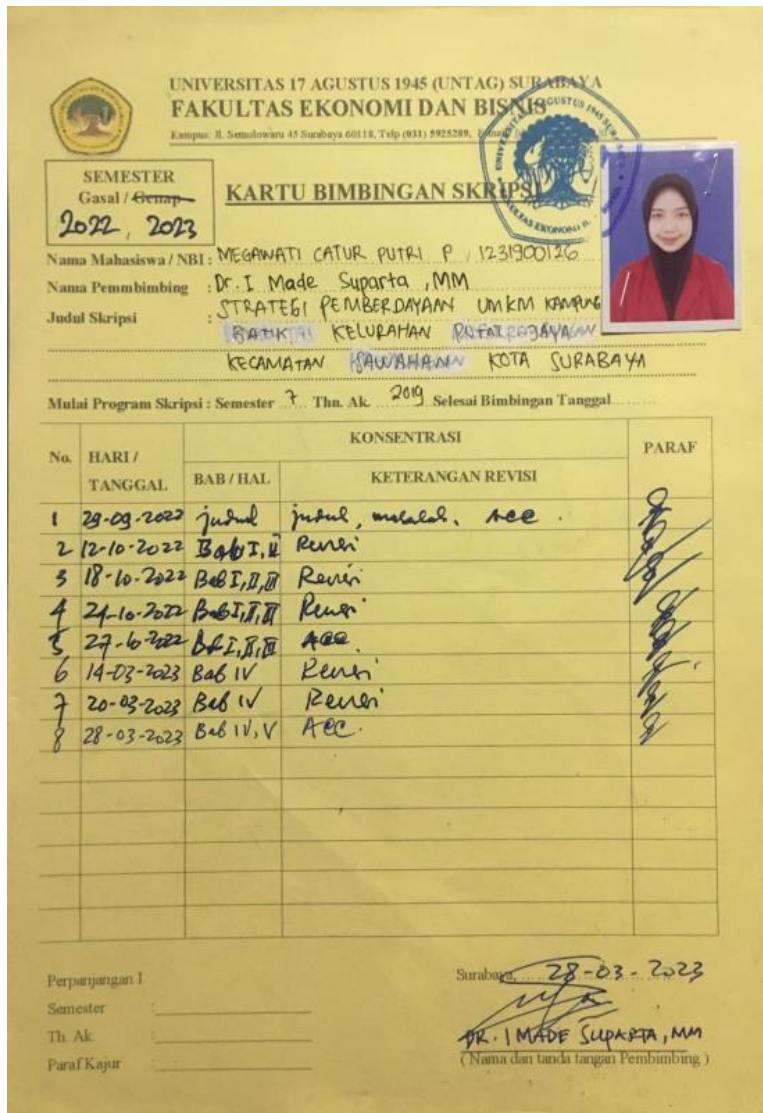 UNIVERSITAS 17 AGUSTUS 1945 (UNTAG) SURABAYA
FAKULTAS EKONOMI DAN BISNIS
Kampus: Jl. Semolowaru 45 Surabaya 60118, Telp (031) 5925289,
SEMESTER
Gasal / Genap
2022, 2023
KARTU BIMBINGAN SKRIPSI
Nama Mahasiswa / NBI : MEGAWATI CATUR PUTRI P / 1231900126
Nama Pemmbimbing : Dr. I Made Suparta, MM
Judul Skripsi : STRATEGI PEMBERDAYAAN UMKM KAMPUNG
KELURAHAN
KECAMATAN SAWAHAN KOTA SURABAYA
Mulai Program Skripsi : Semester 7 Thn. Ak. 2019 Selesai Bimbingan Tanggal
No. HARI / TANGGAL KONSENTRASI PARAF
BAB / HAL KETERANGAN REVISI
1 29-09-2022 judul judul, masalah, Acc.
2 12-10-2022 Bab I, II Revisi
3 18-10-2022 Bab I, II, III Revisi
4 24-10-2022 Bab I, II, III Revisi
5 27-10-2022 Bab I, II, III ACC.
6 14-03-2023 Bab IV Revisi
7 20-03-2023 Bab IV Revisi
8 28-03-2023 Bab IV, V ACC.
Perpanjangan I
Surabaya, 28-03-2023
Semester :
Th. Ak :
DR. I MADE SUPARTA, MM
Paraf Kajur :
( Nama dan tanda tangan Pembimbing )